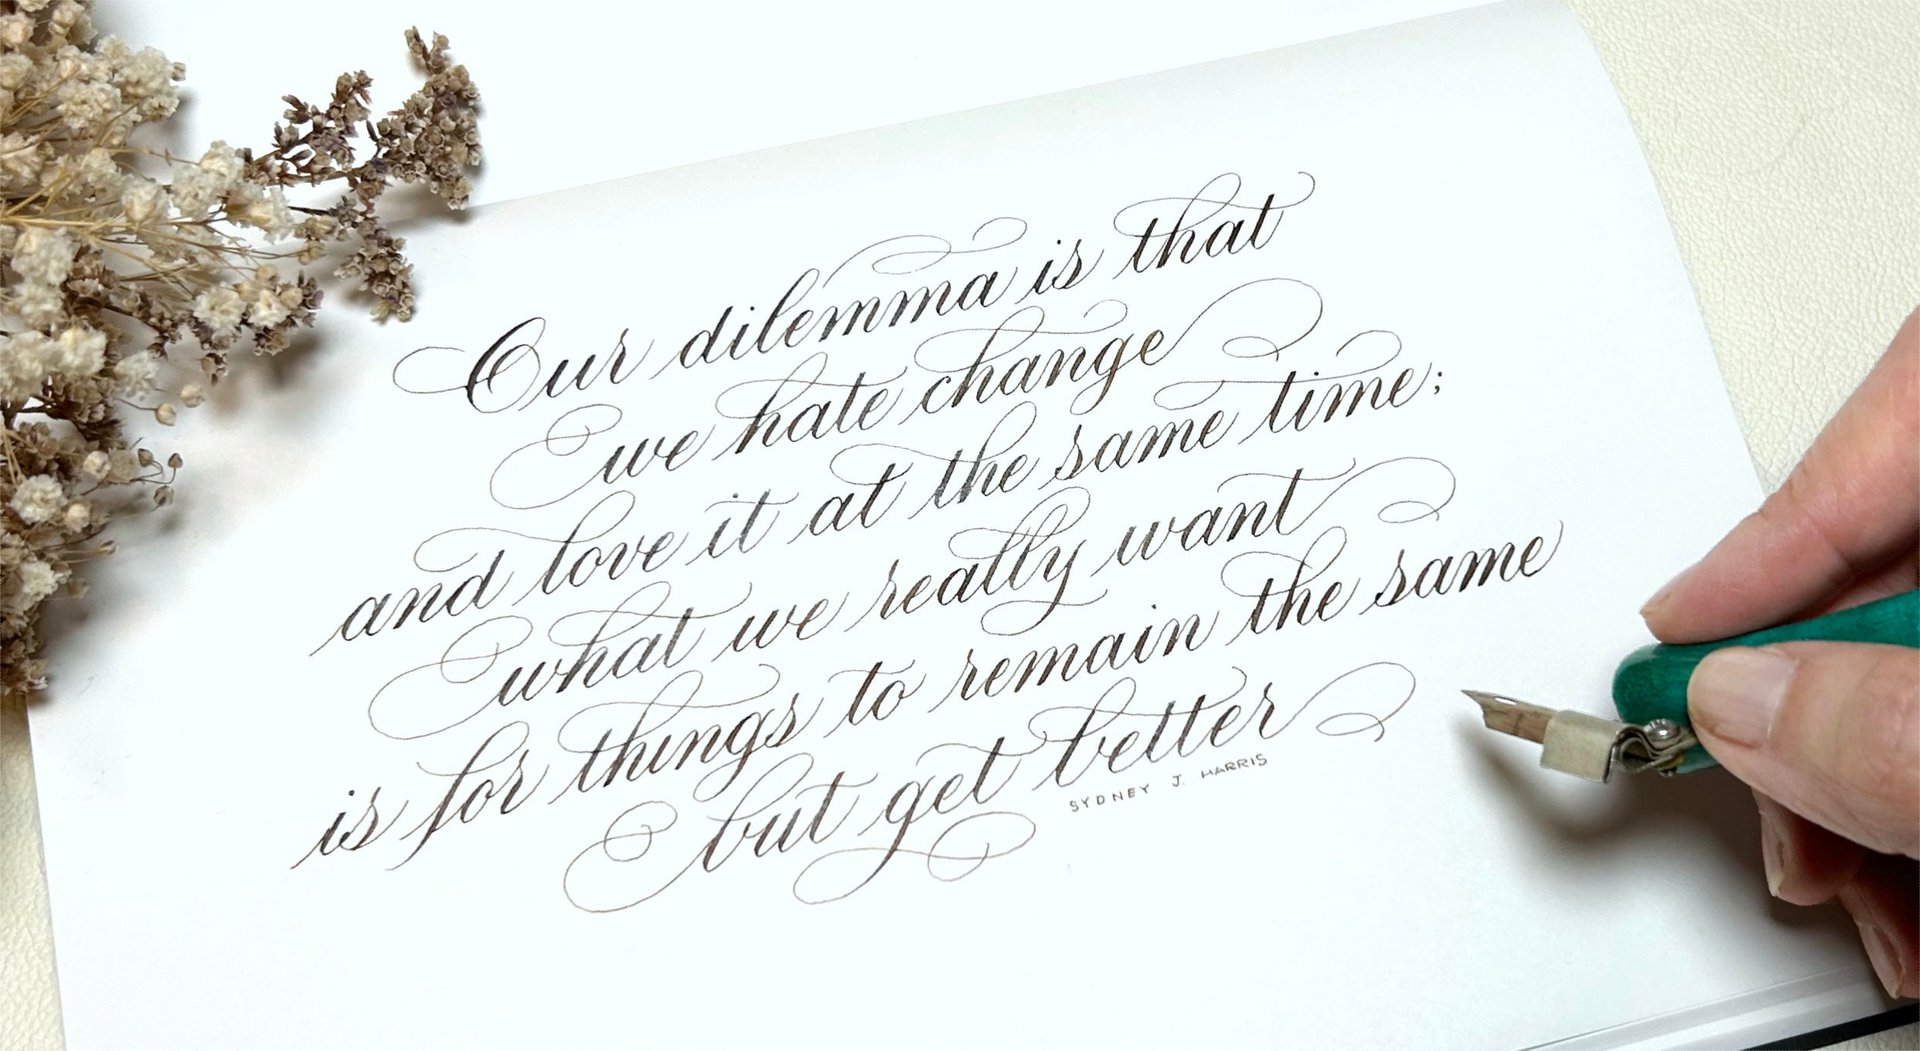 Our dilemma is that
we hate change
and love it at the same time;
what we really want
is for things to remain the same
but get better
SYDNEY J. HARRIS